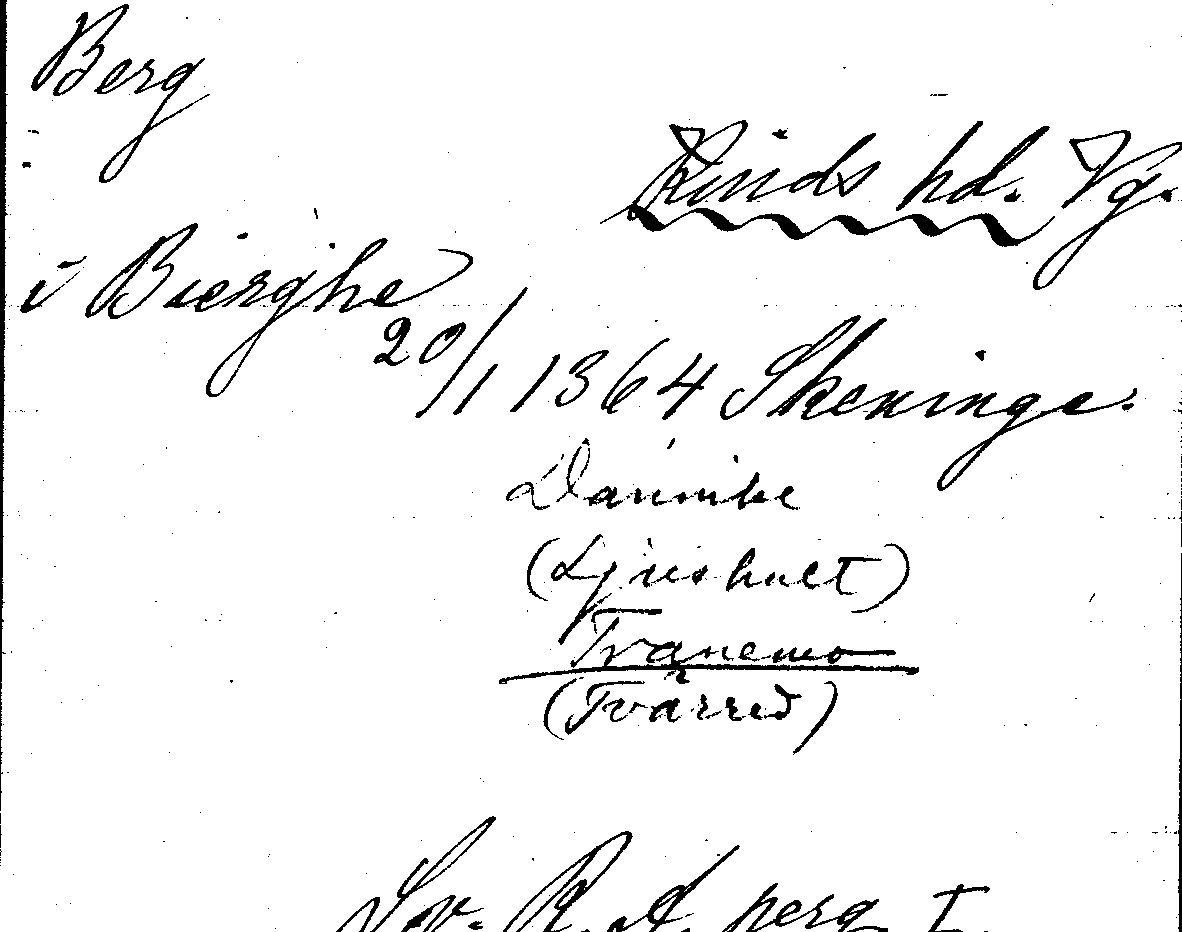 Berg
Kinds hd. Vg.
i Bierghe
20/1 1364 Skeninge.
Dannike
(Ljushult)
Tranemo
(Tvärred)
Sv. R. A. perg I.